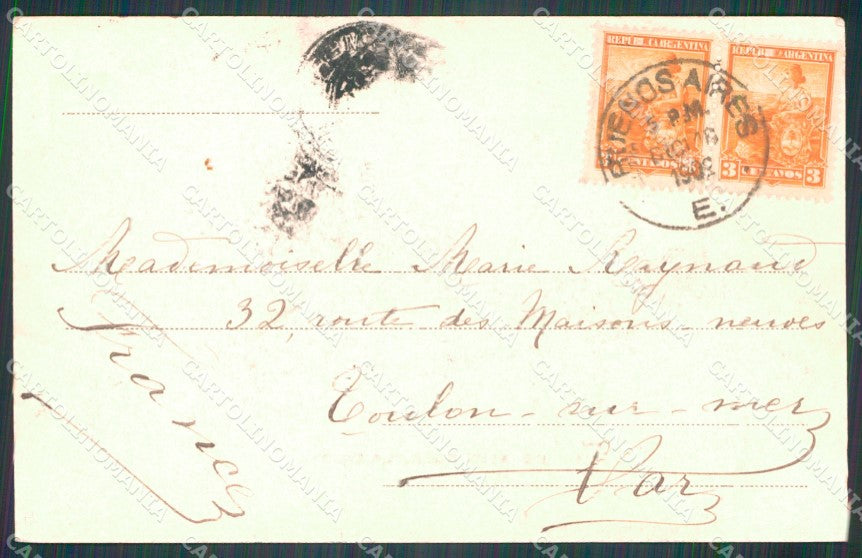 REPUBLICA ARGENTINA
REPUBLICA ARGENTINA
BUENOS AIRES
P.M.
E.
CENTAVOS 3
3 CENTAVOS 3
Mademoiselle Marie Raynaud
32, route des Maisons-neuves
Toulon-sur-mer
Var
France
CARTOLINOMANIA